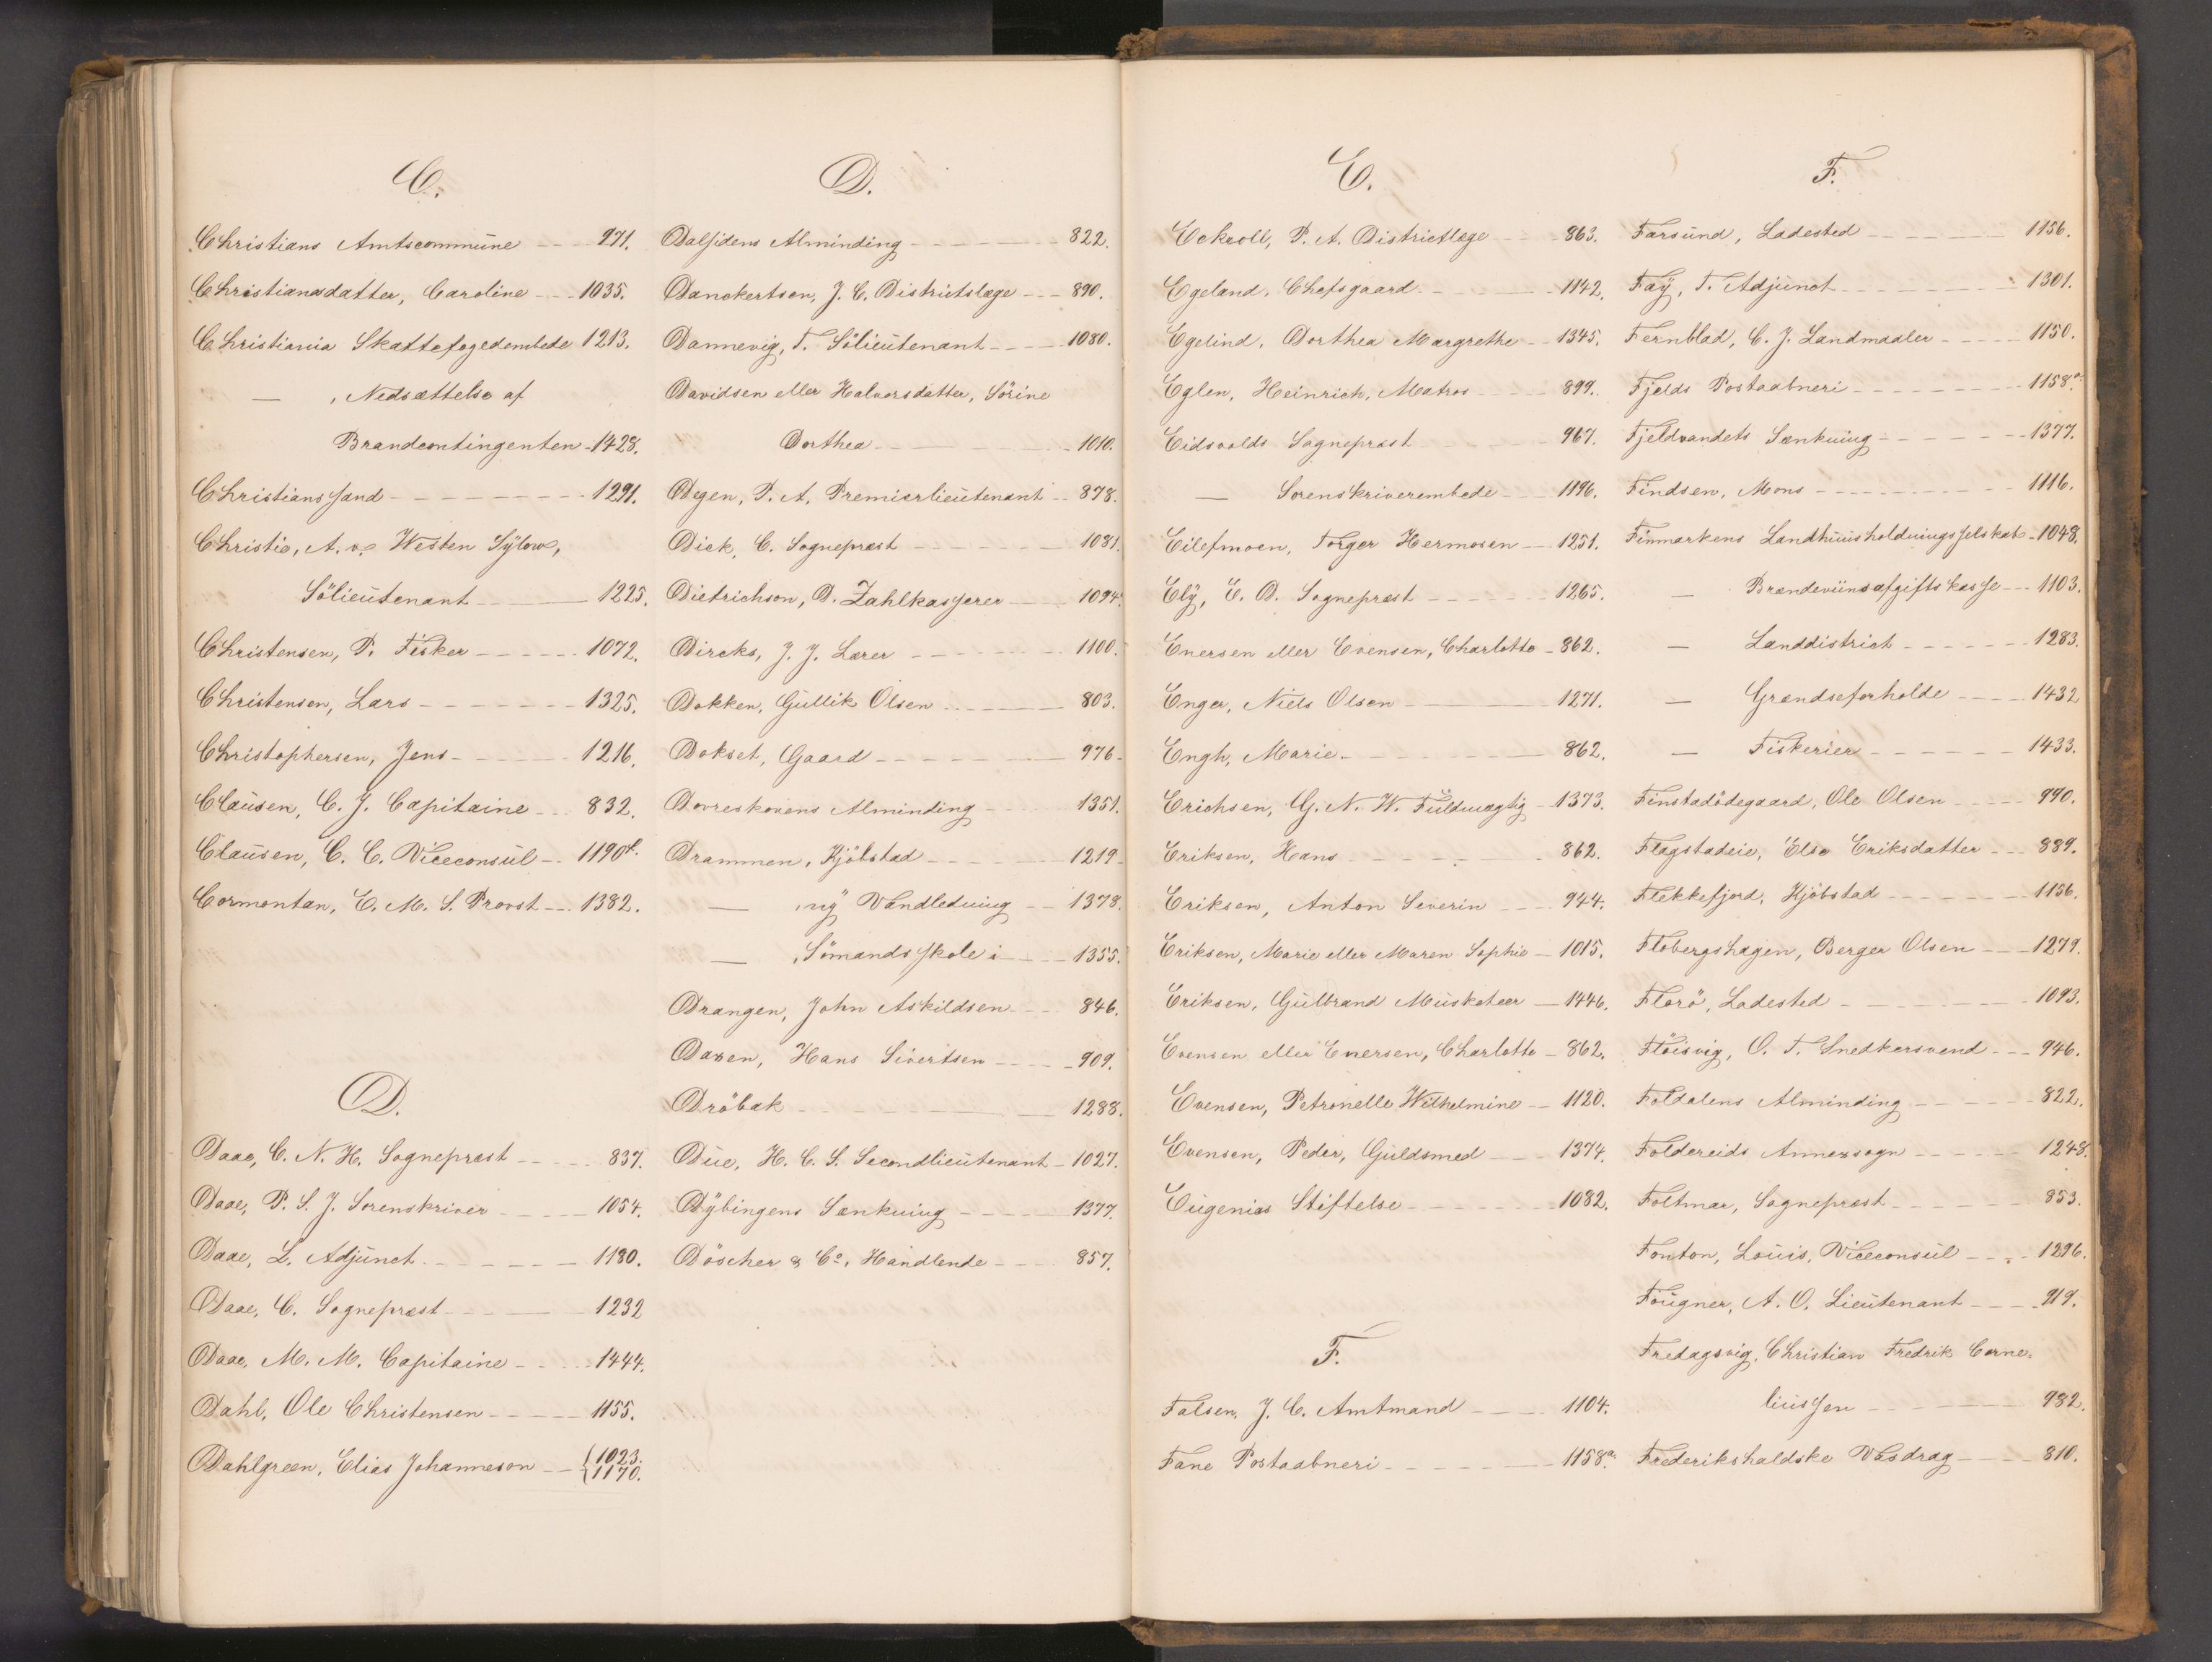 C.
Christians Amtscommune - - - 971.
Christiansdatter, Caroline - - - 1035.
Christiania Skattefogedembede 1213.
— , Nedsættelse af
Brandcontingenten - 1428.
Christianssand - - - - - - - - 1291.
Christie, A. v. Westen Sylow,
Sölieutenant - - - 1225.
Christensen, P. Fisker - - - - - 1072.
Christensen, Lars - - - - - - - 1325.
Christophersen, Jens - - - - - 1216.
Clausen, C. J. Capitaine - - - 832.
Clausen, C. C. Viceconsul - - 1190d.
Cormontan, E. M. S. Provst - - 1382.
D.
Daae, C. N. H. Sogneprest - - - - 837.
Daae, P. S. J. Sorenskriver - - - - 1054.
Daae, L. Adjunct - - - - - - 1180.
Daae, C. Sogneprest - - - - 1232
Daae, M. M. Capitaine - - - - 1444.
Dahl, Ole Christensen - - - - - 1155.
Dahlgreen, Elias Johanneson - - {1023.
{1170.
D.
Dalsidens Alminding - - - - - - 822.
Danckertsen, J. C. Districtslæge - - - 890.
Dannevig, T. Sölieutenant - - - - 1080.
Davidsen eller Halvorsdatter, Sörine
Dorthea - - - - - - - 1010.
Degen, P. A. Premierlieutenant - - 878.
Dick, C. Sogneprest - - - - - - 1081.
Dietrichson, D. Zahlkasserer - - - 1094.
Dircks, J. J. Lærer - - - - - - 1100.
Dokken, Gullik Olsen - - - - - 803.
Dokset, Gaard - - - - - - - 976 -
Dovreskovens Alminding - - - - 1351.
Drammen, Kjöbstad - - - - - 1219 -
— , ny Vandledning - - 1378.
— , Sömandsskole i - - - 1355.
Drangen, John Askildsen - - - 846.
Daxen, Hans Sivertsen - - - - 909.
Dröbak - - - - - - - 1288.
Due, H. C. S. Secondlieutenant - 1027.
Dybingens Sænkning - - - - - 1377.
Döscher & Co, Handlende - - - - 857.
E.
Eckroll, P. A. Districtlæge - - - 863.
Egeland, Chefsgaard - - - - - 1142.
Egelind, Dorthea Margrethe - - 1345.
Eglen, Heinrich, Matros - - - - 899.
Eidsvolds Sogneprest - - - - 967.
— Sorenskriverembede - - 1196.
Eilefmoen, Torger Hermosen - - 1251.
Ely, E. D. Sogneprest - - - - - 1265.
Enersen eller Evensen, Charlotte - 862.
Enger, Niels Olsen - - - - - 1271.
Engh, Marie - - - - - - - 862.
Erichsen, G. N. W. Fuldmægtig - 1373.
Eriksen, Hans - - - - - - 862.
Eriksen, Anton Severin - - - 944.
Eriksen, Marie eller Maren Sophie - 1015.
Eriksen, Gulbrand Musketeer - 1446.
Evensen eller Enersen, Charlotte - 862.
Evensen, Petronelle Wilhelmine - 1120.
Evensen, Peder, Guldsmed - - - 1374.
Eugenias Stiftelse - - - - - - 1082.
F.
Falsen, J. C. Amtmand - - - - 1104.
Fane Postaabneri - - - - - - 1158a.
F.
Farsund, Ladested - - - - - - 1156.
Fay, T. Adjunct - - - - - - - 1301.
Fernblad, C. J. Landmaaler - - - - 1150.
Fjelds Postaabneri - - - - - - 1158a.
Fjeldvandets Sænkning - - - - - 1377.
Findsen, Mons - - - - - - - - 1116.
Finmarkens Landhuusholdningsselskab - 1048.
— Brændeviinsafgiftskasse - - - 1103.
— Landdistrict - - - - - - 1283.
— Grændseforholde - - - - 1432
— Fiskerier - - - - - 1433.
Finstadödegaard, Ole Olsen - - - - 990.
Flagstadeie, Else Eriksdatter - - - 889.
Flekkefjord, Kjöbstad - - - - - - 1156.
Flobergshagen, Berger Olsen - - - 1279.
Florö, Ladested - - - - - - - 1093.
Flöisvig, O. T. Snedkersvend - - - 946.
Foldalens Alminding - - - - - - 822.
Foldereids Annexsogn - - - - - 1248.
Foltmar, Sogneprest - - - - - - 853.
Fonton, Louis, Viceconsul - - - - 1296.
Fougner, A. O. Lieutenant - - - - 919.
Fredagsvig, Christian Fredrik Corne=
liussen - - - - - - 982.
Frederikshaldske Vasdrag - - - - 810.